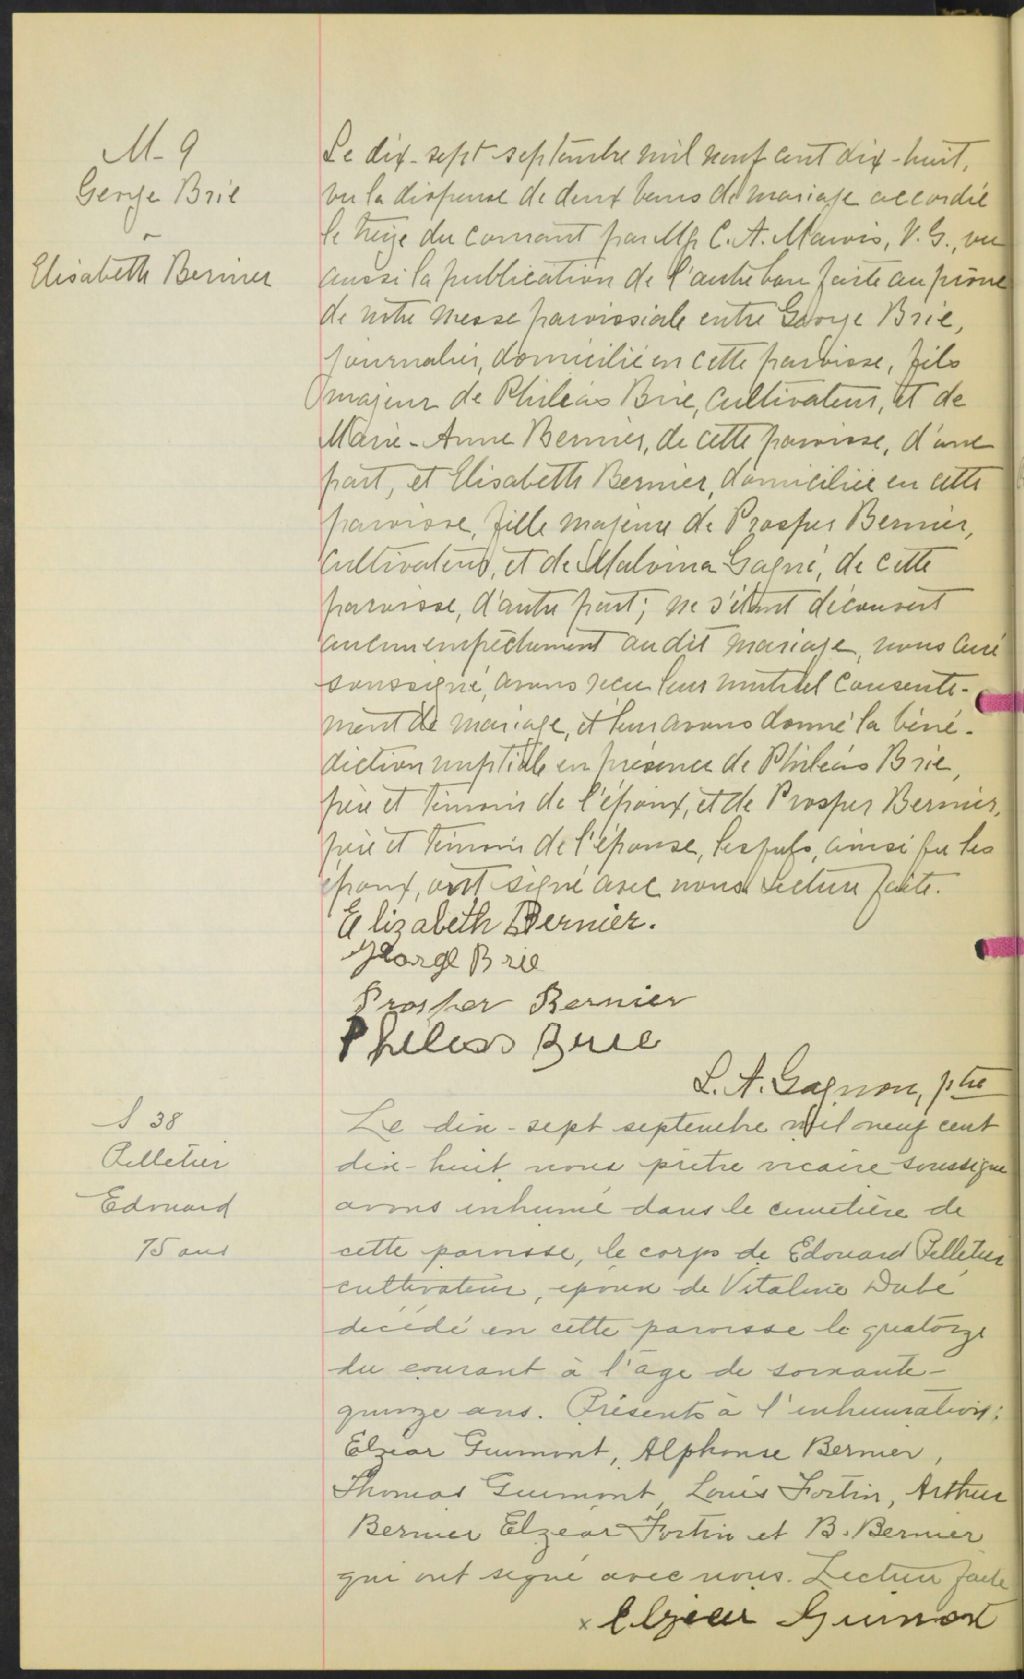 M. 9
George Brie
-
Elisabeth Bernier
Le dix-sept septembre mil neuf cent dix-huit,
vu la dispense de deux bans de mariage accordée
le treize du courant par Mgr C. A. Marois, V. G., vu
aussi la publication de l'autre ban faite au prône
de notre messe paroissiale entre George Brie,
journalier, domicilié en cette paroisse, fils
majeur de Philéas Brie, cultivateur, et de
Marie-Anne Bernier, de cette paroisse, d'une
part, et Elisabeth Bernier, domiciliée en cette
paroisse, fille majeure de Prosper Bernier,
cultivateur, et de Malvina Gagné, de cette
paroisse, d'autre part; ne s'étant découvert
aucun empêchement au dit mariage, nous curé
soussigné, avons reçu leur mutuel consente-
ment de mariage, et leur avons donné la béné-
diction nuptiale en présence de Philéas Brie,
père et témoin de l'époux, et de Prosper Bernier,
père et témoin de l'épouse, lesquels, ainsi que les
époux, ont signé avec nous. Lecture faite.
Elizabeth Bernier.
George Brie
Prosper Bernier
Phileas Brie
L. A. Gagnon, ptre
S 38
Pelletier
Edouard
75 ans
Le dix-sept septembre mil neuf cent
dix-huit nous prêtre vicaire soussigné
avons inhumé dans le cimetière de
cette paroisse, le corps de Edouard Pelletier
cultivateur, époux de Vitaline Dubé
décédé en cette paroisse le quatorze
du courant à l'âge de soixante-
quinze ans. Présents à l'inhumation:
Elzéar Guimont, Alphonse Bernier,
Thomas Guimont, Louis Fortin, Arthur
Bernier Elzéar Fortin et B. Bernier
qui ont signé avec nous. Lecture faite
x Elzear Guimont